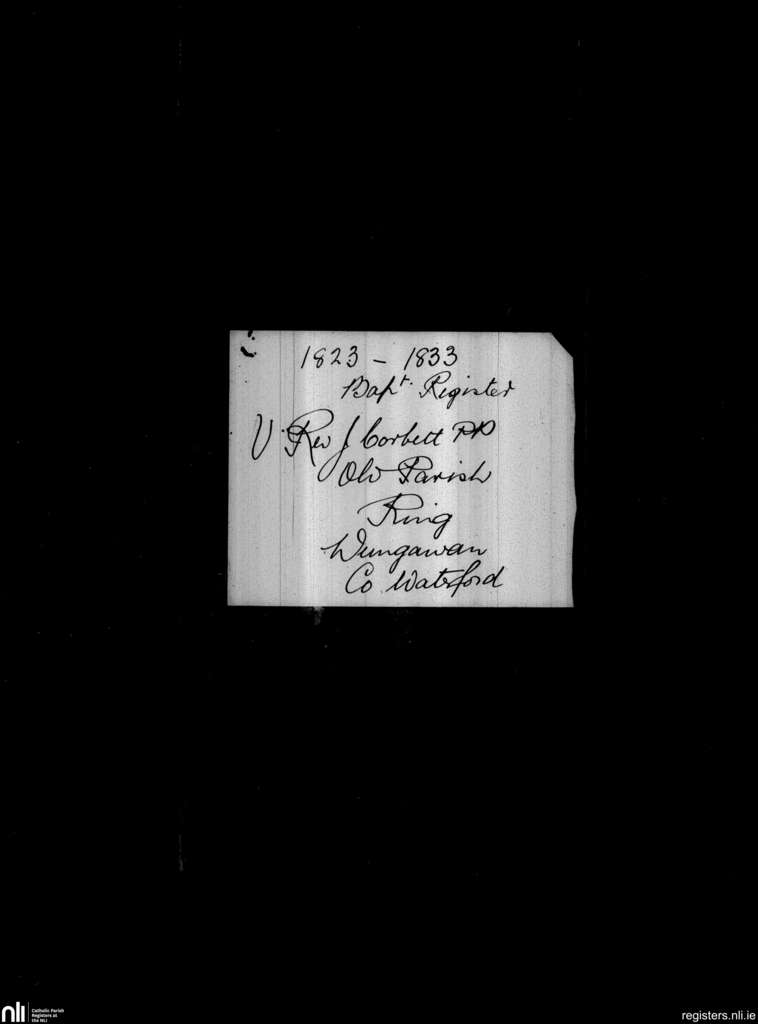 1823 - 1833
Bapt. Register
V. Rev J Corbett PP
Old Parish
Ring
Dungarvan
Co Waterford
nli
Catholic Parish
Registers at
the NLI
registers.nli.ie